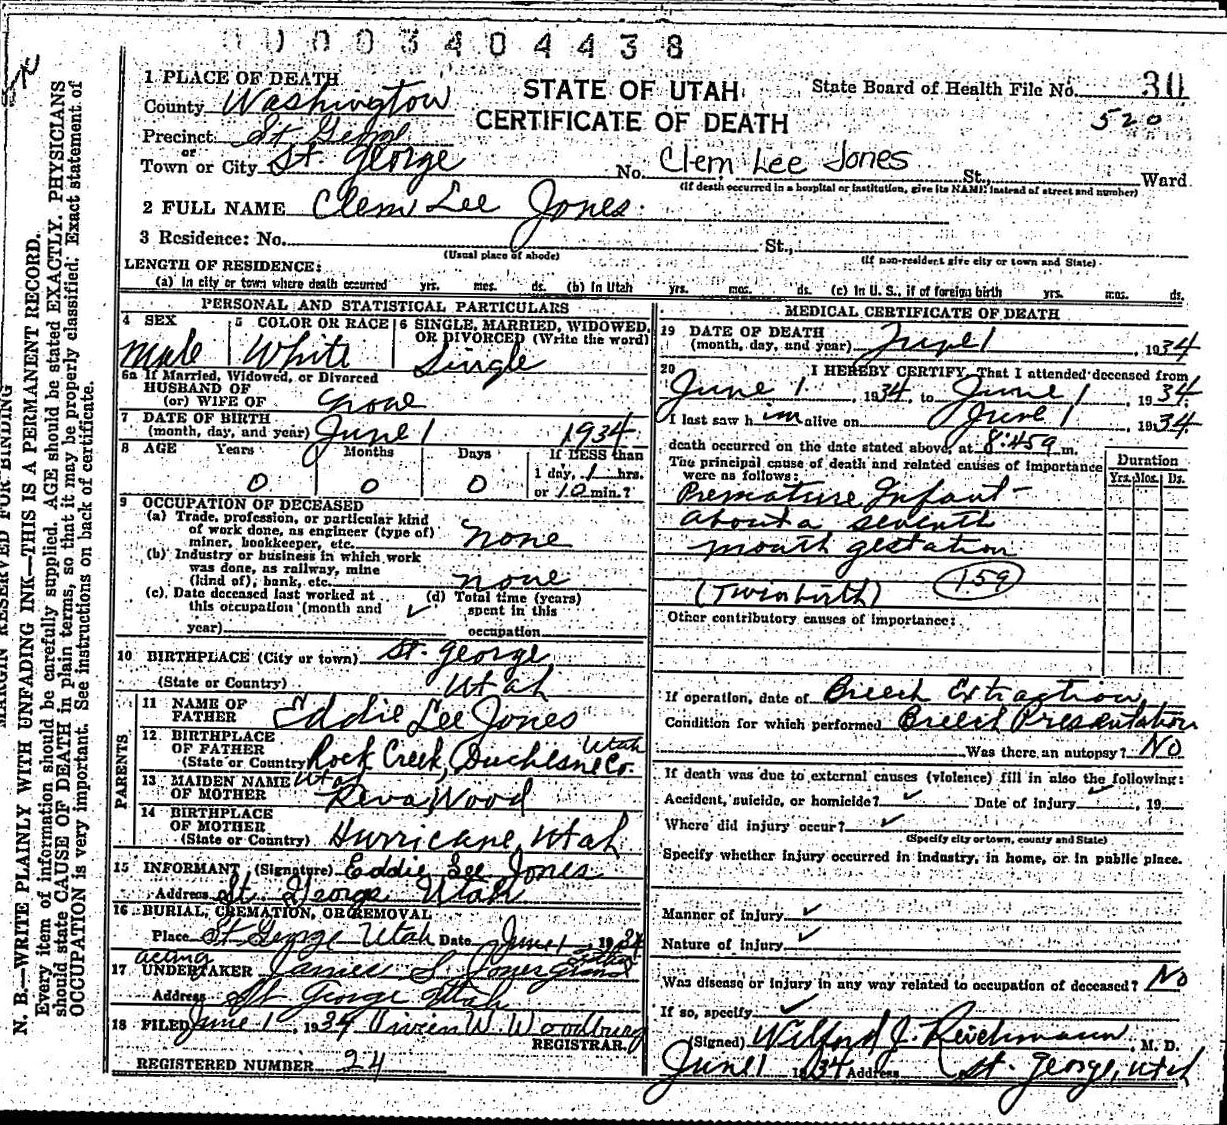 00003404438
1 PLACE OF DEATH
County Washington
Precinct St George
or
Town or City St. George
STATE OF UTAH
CERTIFICATE OF DEATH
State Board of Health File No. 30
520
No. Clem Lee Jones St., Ward
(If death occurred in a hospital or institution, give its NAME instead of street and number)
2 FULL NAME Clem Lee Jones
3 Residence: No. St.,
(Usual place of abode) (If non-resident give city or town and State)
LENGTH OF RESIDENCE:
(a) In city or town where death occurred yrs. mos. ds. (b) In Utah yrs. mos. ds. (c) In U. S., if of foreign birth yrs. mos. ds.
PERSONAL AND STATISTICAL PARTICULARS
4 SEX
Male
5 COLOR OR RACE
White
6 SINGLE, MARRIED, WIDOWED,
OR DIVORCED (Write the word)
Single
6a If Married, Widowed, or Divorced
HUSBAND OF
(or) WIFE OF none
7 DATE OF BIRTH
(month, day, and year) June 1 1934
8 AGE Years Months Days If LESS than
1 day, 1 hrs.
0 0 0 or 10 min.?
9 OCCUPATION OF DECEASED
(a) Trade, profession, or particular kind
of work done, as engineer (type of)
miner, bookkeeper, etc. none
(b) Industry or business in which work
was done, as railway, mine
(kind of), bank, etc. none
(c) Date deceased last worked at
this occupation (month and
year)
(d) Total time (years)
spent in this
occupation
10 BIRTHPLACE (City or town) St. George
(State or Country) Utah
PARENTS
11 NAME OF
FATHER Eddie Lee Jones
12 BIRTHPLACE
OF FATHER
(State or Country) Rock Creek, Duchesne Co. Utah
Utah
13 MAIDEN NAME
OF MOTHER Reva Wood
14 BIRTHPLACE
OF MOTHER
(State or Country) Hurricane, Utah
15 INFORMANT (Signature) Eddie Lee Jones
Address St. George Utah
16 BURIAL, CREMATION, OR REMOVAL
Place St George Utah Date June 1 1934
acting
17 UNDERTAKER James S. Jones Grand father
Address St George Utah
18 FILED June 1, 1934 Vivien W. Woodbury
REGISTRAR.
REGISTERED NUMBER 24
MEDICAL CERTIFICATE OF DEATH
19 DATE OF DEATH
(month, day, and year) June 1, 1934
20 I HEREBY CERTIFY, That I attended deceased from
June 1, 1934, to June 1, 1934.
I last saw him alive on June 1, 1934.
death occurred on the date stated above, at 8:45 m.
The principal cause of death and related causes of importance
were as follows:
Duration
Yrs. Mos. Ds.
Premature Infant -
about a seventh
month gestation
159
(Twin birth)
Other contributory causes of importance:
If operation, date of Breech Extraction
Condition for which performed Breech Presentation
Was there an autopsy? No
If death was due to external causes (violence) fill in also the following:
Accident, suicide, or homicide? ✓ Date of injury ✓, 19
Where did injury occur? ✓
(Specify city or town, county and State)
Specify whether injury occurred in industry, in home, or in public place.
Manner of injury ✓
Nature of injury ✓
Was disease or injury in any way related to occupation of deceased? No
If so, specify ✓
(Signed) Wilford J. Reichmann, M. D.
June 1 1934 Address St. George, Utah
MARGIN RESERVED FOR BINDING
N. B.—WRITE PLAINLY WITH UNFADING INK—THIS IS A PERMANENT RECORD.
Every item of information should be carefully supplied. AGE should be stated EXACTLY. PHYSICIANS
should state CAUSE OF DEATH in plain terms, so that it may be properly classified. Exact statement of
OCCUPATION is very important. See instructions on back of certificate.